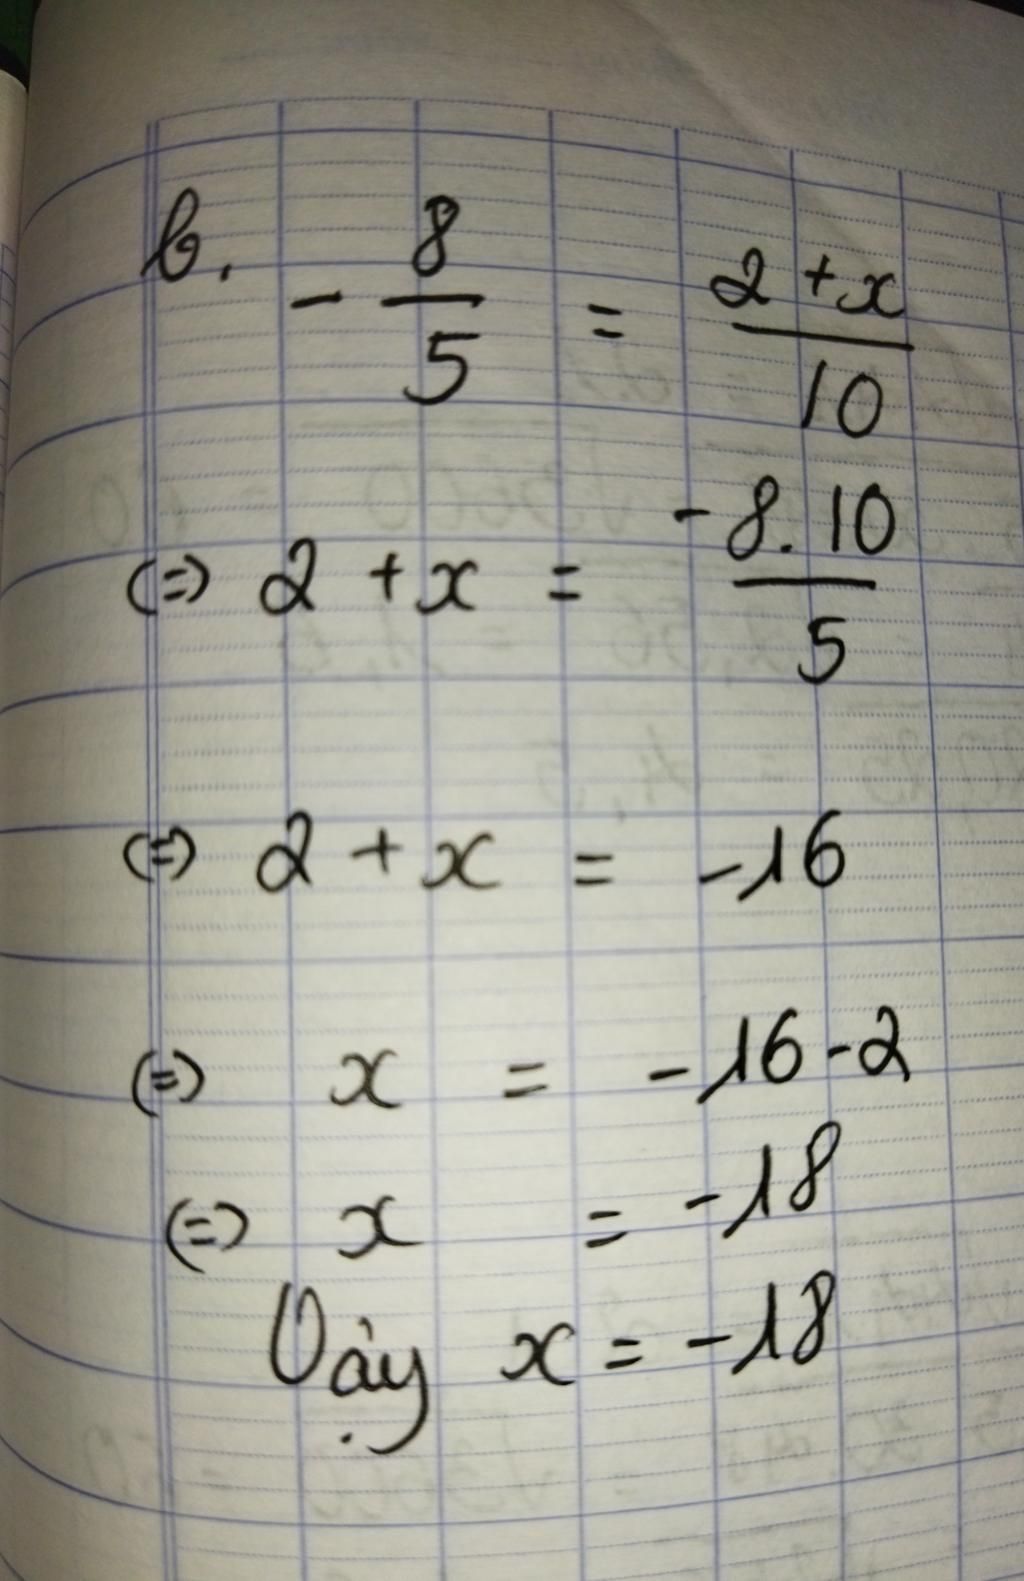 b. - 8/5 = 2 + x/10
(=) 2 + x = -8.10/5
(=) 2 + x = -16
(=) x = -16 - 2
(=) x = -18
Vậy x = -18